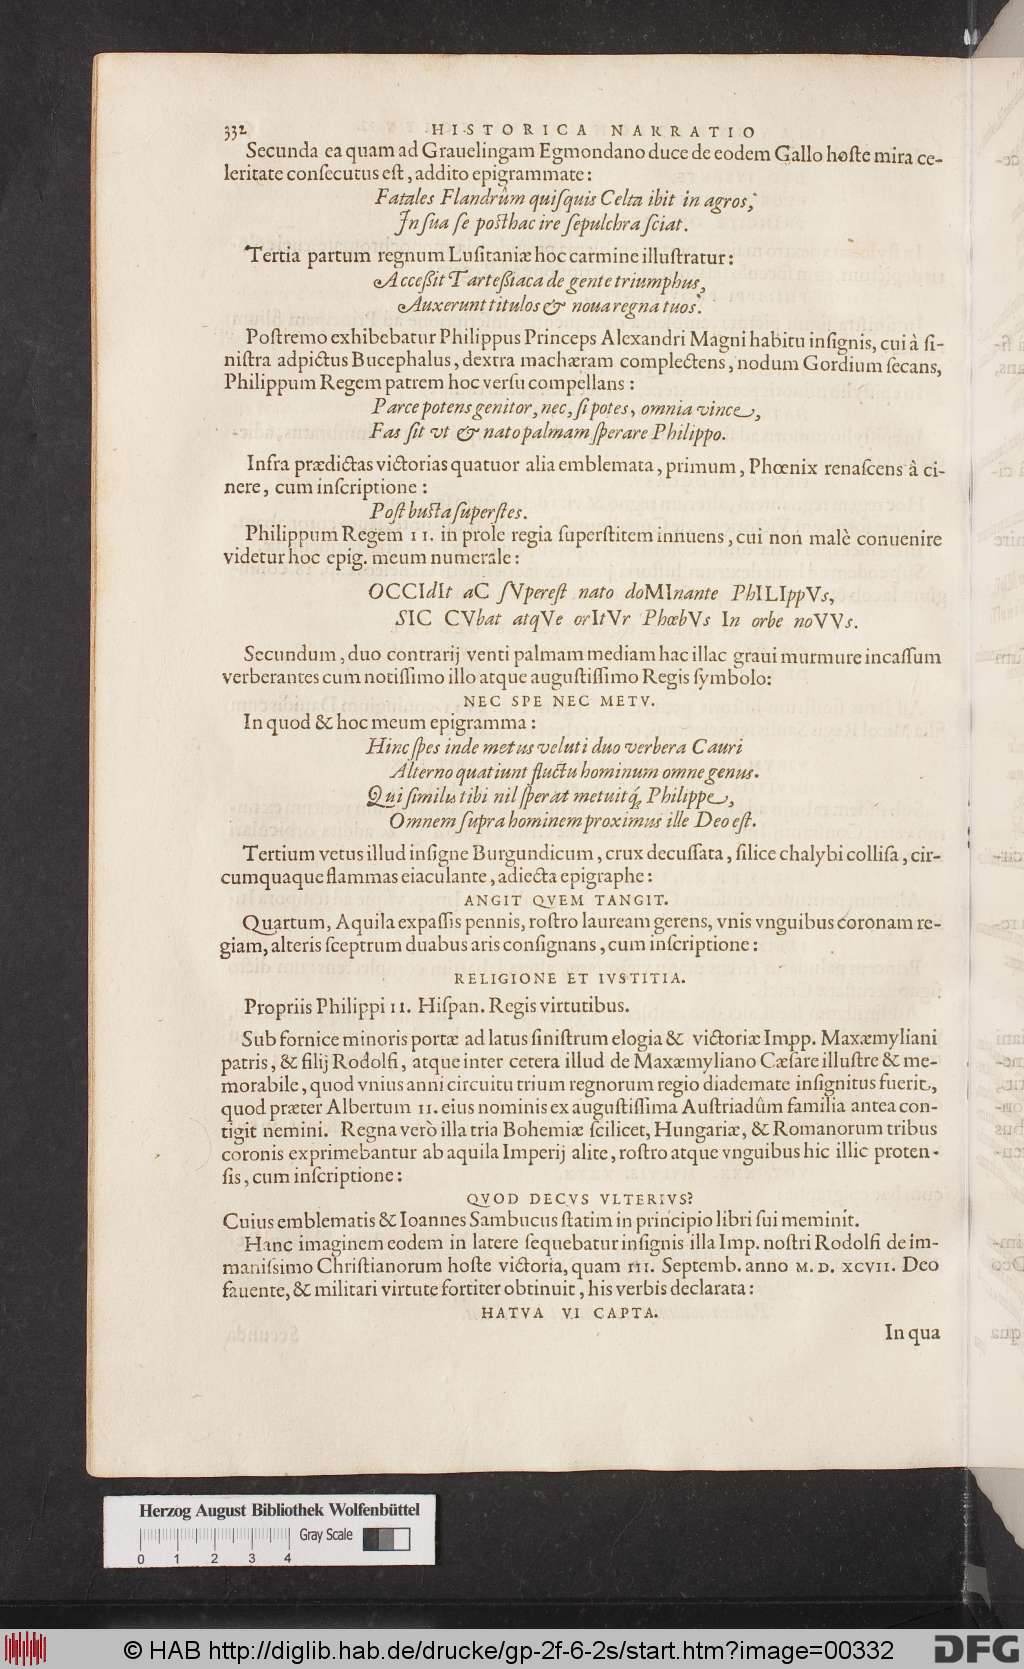 332 HISTORICA NARRATIO
Secunda ea quam ad Grauelingam Egmondano duce de eodem Gallo hoſte mira ce-
leritate conſecutus eſt, addito epigrammate:
Fatales Flandrûm quiſquis Celta ibit in agros,
In ſua ſe posthac ire ſepulchra ſciat.
Tertia partum regnum Luſitaniæ hoc carmine illuſtratur:
Acceßit Tarteßiaca de gente triumphus,
Auxerunt titulos & noua regna tuos.
Poſtremo exhibebatur Philippus Princeps Alexandri Magni habitu inſignis, cui à ſi-
niſtra adpictus Bucephalus, dextra machæram complectens, nodum Gordium ſecans,
Philippum Regem patrem hoc verſu compellans:
Parce potens genitor, nec, ſi potes, omnia vince,
Fas ſit vt & nato palmam ſperare Philippo.
Infra prædictas victorias quatuor alia emblemata, primum, Phœnix renaſcens à ci-
nere, cum inſcriptione:
Poſt buſta ſuperſtes.
Philippum Regem II. in prole regia ſuperſtitem innuens, cui non malè conuenire
videtur hoc epig. meum numerale:
OCCIdIt aC ſVpereſt nato doMInante PhILIppVs,
SIC CVbat atqVe orItVr PhœbVs In orbe noVVs.
Secundum, duo contrarij venti palmam mediam hac illac graui murmure incaſſum
verberantes cum notiſſimo illo atque auguſtiſſimo Regis ſymbolo:
NEC SPE NEC METV.
In quod & hoc meum epigramma:
Hinc ſpes inde metus veluti duo verbera Cauri
Alterno quatiunt fluctu hominum omne genus.
Qui ſimilis tibi nil ſperat metuitq́; Philippe,
Omnem ſupra hominem proximus ille Deo eſt.
Tertium vetus illud inſigne Burgundicum, crux decuſſata, ſilice chalybi colliſa, cir-
cumquaque flammas eiaculante, adiecta epigraphe:
ANGIT QVEM TANGIT.
Quartum, Aquila expaſſis pennis, roſtro lauream gerens, vnis vnguibus coronam re-
giam, alteris ſceptrum duabus aris conſignans, cum inſcriptione:
RELIGIONE ET IVSTITIA.
Propriis Philippi II. Hiſpan. Regis virtutibus.
Sub fornice minoris portæ ad latus ſiniſtrum elogia & victoriæ Impp. Maxæmyliani
patris, & filij Rodolfi, atque inter cetera illud de Maxæmyliano Cæſare illuſtre & me-
morabile, quod vnius anni circuitu trium regnorum regio diademate inſignitus fuerit,
quod præter Albertum II. eius nominis ex auguſtiſſima Auſtriadûm familia antea con-
tigit nemini. Regna verò illa tria Bohemiæ ſcilicet, Hungariæ, & Romanorum tribus
coronis exprimebantur ab aquila Imperij alite, roſtro atque vnguibus hic illic proten-
ſis, cum inſcriptione:
QVOD DECVS VLTERIVS?
Cuius emblematis & Ioannes Sambucus ſtatim in principio libri ſui meminit.
Hanc imaginem eodem in latere ſequebatur inſignis illa Imp. noſtri Rodolfi de im-
maniſsimo Chriſtianorum hoſte victoria, quam III. Septemb. anno M. D. XCVII. Deo
fauente, & militari virtute fortiter obtinuit, his verbis declarata:
HATVA VI CAPTA.
In qua
Herzog August Bibliothek Wolfenbüttel
Gray Scale
0 1 2 3 4
© HAB http://diglib.hab.de/drucke/gp-2f-6-2s/start.htm?image=00332
DFG